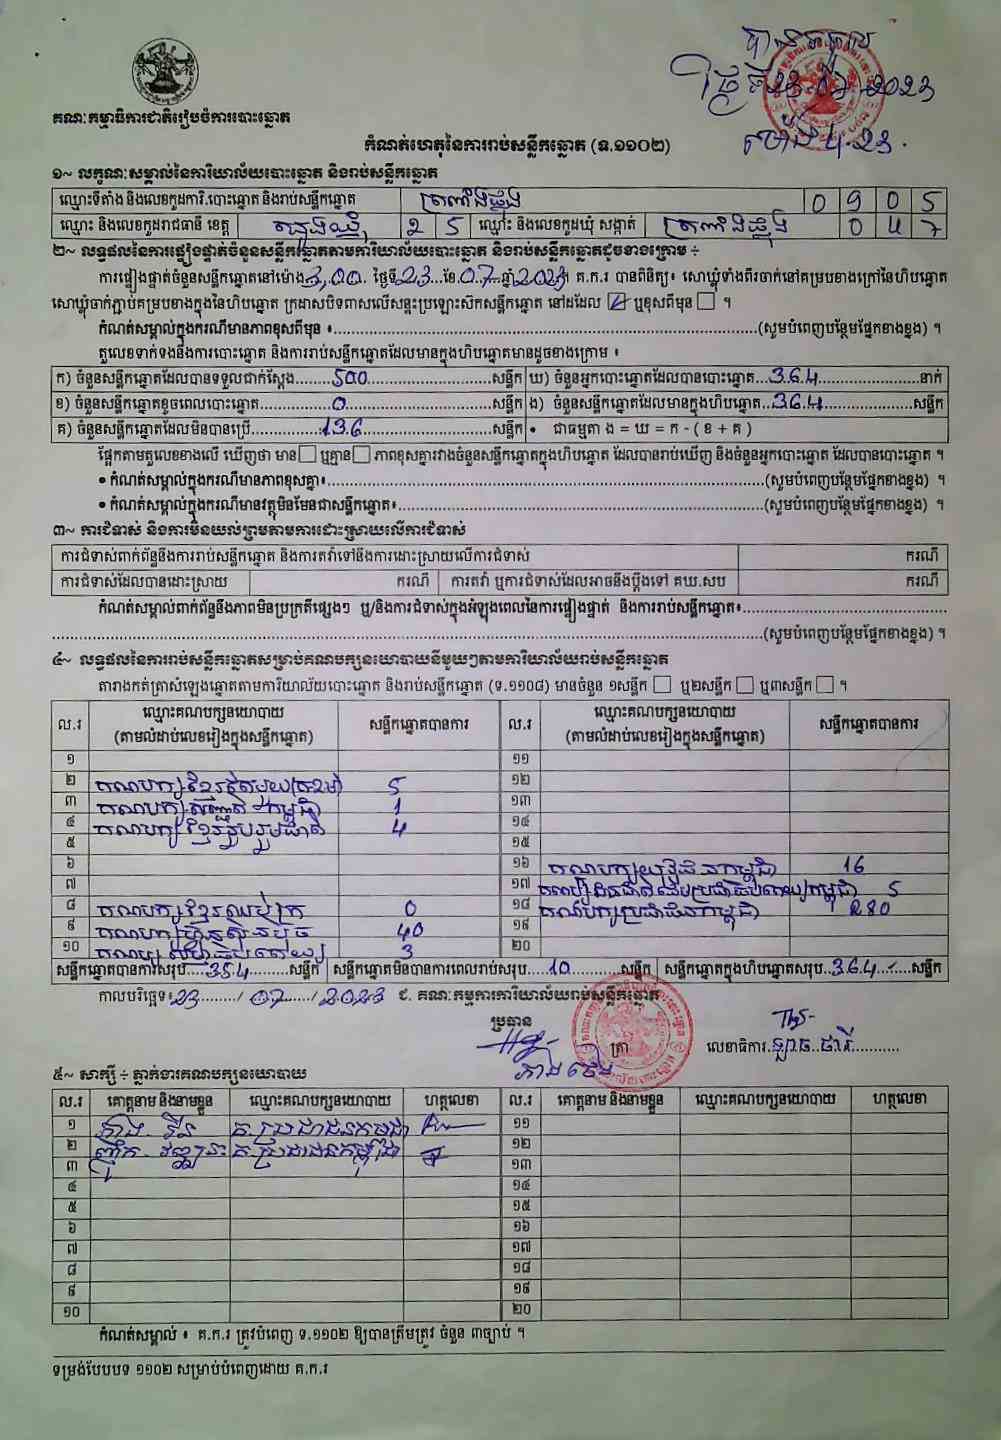 បានទទួល
ថ្ងៃទី23.07.2023
ម៉ោង 4.23.
គណៈកម្មាធិការជាតិរៀបចំការបោះឆ្នោត
កំណត់ហេតុនៃការរាប់សន្លឹកឆ្នោត (ទ.១១០២)
១~ លក្ខណៈសម្គាល់នៃការិយាល័យបោះឆ្នោត និងរាប់សន្លឹកឆ្នោត
ឈ្មោះទីតាំង និងលេខកូដការិ.បោះឆ្នោត និងរាប់សន្លឹកឆ្នោត 0 9 0 5
ឈ្មោះ និងលេខកូដរាជធានី ខេត្ត ត្បូងឃ្មុំ 2 5 ឈ្មោះ និងលេខកូដឃុំ សង្កាត់ 0 4 7
២~ លទ្ធផលនៃការផ្ទៀងផ្ទាត់ចំនួនសន្លឹកឆ្នោតតាមការិយាល័យបោះឆ្នោត និងរាប់សន្លឹកឆ្នោតដូចខាងក្រោម ÷
ការផ្ទៀងផ្ទាត់ចំនួនសន្លឹកឆ្នោតនៅម៉ោង 3,00. ថ្ងៃទី 23 ខែ 07 ឆ្នាំ 2023 ។ គ.ក.រ បានពិនិត្យ៖ សោឃ្លុំទាំងពីរចាក់នៅគម្របខាងក្រៅនៃហិបឆ្នោត
សោឃ្លុំចាក់ភ្ជាប់គម្របខាងក្នុងនៃហិបឆ្នោត ក្រដាសបិទពាសលើសន្ទះប្រឡោះស៊កសន្លឹកឆ្នោត នៅដដែល ☑ ឬខុសពីមុន ☐ ។
កំណត់សម្គាល់ក្នុងករណីមានភាពខុសពីមុន ៖ (សូមបំពេញបន្ថែមផ្នែកខាងខ្នង) ។
តួលេខទាក់ទងនឹងការបោះឆ្នោត និងការរាប់សន្លឹកឆ្នោតដែលមានក្នុងហិបឆ្នោតមានដូចខាងក្រោម ៖
ក) ចំនួនសន្លឹកឆ្នោតដែលបានទទួលជាក់ស្តែង 500 សន្លឹក ឃ) ចំនួនអ្នកបោះឆ្នោតដែលបានបោះឆ្នោត 364 នាក់
ខ) ចំនួនសន្លឹកឆ្នោតខូចពេលបោះឆ្នោត 0 សន្លឹក ង) ចំនួនសន្លឹកឆ្នោតដែលមានក្នុងហិបឆ្នោត 364 សន្លឹក
គ) ចំនួនសន្លឹកឆ្នោតដែលមិនបានប្រើ 136 សន្លឹក • ជាធម្មតា ង = ឃ = ក - ( ខ + គ )
ផ្អែកតាមតួលេខខាងលើ ឃើញថា មាន ☐ ឬគ្មាន ☐ ភាពខុសគ្នារវាងចំនួនសន្លឹកឆ្នោតក្នុងហិបឆ្នោត ដែលបានរាប់ឃើញ និងចំនួនអ្នកបោះឆ្នោត ដែលបានបោះឆ្នោត ។
• កំណត់សម្គាល់ក្នុងករណីមានភាពខុសគ្នា៖ (សូមបំពេញបន្ថែមផ្នែកខាងខ្នង) ។
• កំណត់សម្គាល់ក្នុងករណីមានវត្ថុមិនមែនជាសន្លឹកឆ្នោត៖ (សូមបំពេញបន្ថែមផ្នែកខាងខ្នង) ។
៣~ ការជំទាស់ និងការមិនយល់ព្រមតាមការដោះស្រាយលើការជំទាស់
ការជំទាស់ពាក់ព័ន្ធនឹងការរាប់សន្លឹកឆ្នោត និងការតវ៉ាទៅនឹងការដោះស្រាយលើការជំទាស់ ករណី
ការជំទាស់ដែលបានដោះស្រាយ ករណី ការតវ៉ា ឬការជំទាស់ដែលអាចនឹងប្តឹងទៅ គឃ.សប ករណី
កំណត់សម្គាល់ពាក់ព័ន្ធនឹងភាពមិនប្រក្រតីផ្សេងៗ ឬ/និងការជំទាស់ក្នុងអំឡុងពេលនៃការផ្ទៀងផ្ទាត់ និងការរាប់សន្លឹកឆ្នោត៖
(សូមបំពេញបន្ថែមផ្នែកខាងខ្នង) ។
៤~ លទ្ធផលនៃការរាប់សន្លឹកឆ្នោតសម្រាប់គណបក្សនយោបាយនីមួយៗតាមការិយាល័យរាប់សន្លឹកឆ្នោត
តារាងកត់ត្រាសំឡេងឆ្នោតតាមការិយាល័យបោះឆ្នោត និងរាប់សន្លឹកឆ្នោត (ទ.១១០៨) មានចំនួន ១សន្លឹក ☐ ឬ២សន្លឹក ☐ ឬ៣សន្លឹក ☐ ។
ល.រ ឈ្មោះគណបក្សនយោបាយ សន្លឹកឆ្នោតបានការ ល.រ ឈ្មោះគណបក្សនយោបាយ សន្លឹកឆ្នោតបានការ
(តាមលំដាប់លេខរៀងក្នុងសន្លឹកឆ្នោត) (តាមលំដាប់លេខរៀងក្នុងសន្លឹកឆ្នោត)
១ ១១
២ គណបក្សខ្មែរតែមួយ 5 ១២
៣ 1 ១៣
៤ គណបក្សខ្មែររួបរួមជាតិ 4 ១៤
៥ ១៥
៦ ១៦ គណបក្សយុវជនកម្ពុជា 16
៧ ១៧ 5
៨ គណបក្សខ្មែរឈប់ក្រ 0 ១៨ គណបក្សប្រជាជនកម្ពុជា 280
៩ គណបក្សហ្វ៊ុនស៊ិនប៉ិច 40 ១៩
១០ 3 ២០
សន្លឹកឆ្នោតបានការសរុប 354 សន្លឹក សន្លឹកឆ្នោតមិនបានការពេលរាប់សរុប 10 សន្លឹក សន្លឹកឆ្នោតក្នុងហិបឆ្នោតសរុប 364 សន្លឹក
កាលបរិច្ឆេទ៖ 23 / 07 / 2023 ជ. គណៈកម្មការការិយាល័យរាប់សន្លឹកឆ្នោត
ប្រធាន
ត្រា លេខាធិការ
៥~ សាក្សី ÷ ភ្នាក់ងារគណបក្សនយោបាយ
ល.រ គោត្តនាម និងនាមខ្លួន ឈ្មោះគណបក្សនយោបាយ ហត្ថលេខា ល.រ គោត្តនាម និងនាមខ្លួន ឈ្មោះគណបក្សនយោបាយ ហត្ថលេខា
១ គ.ប្រជាជនកម្ពុជា ១១
២ គ.ប្រជាជនកម្ពុជា ១២
៣ ១៣
៤ ១៤
៥ ១៥
៦ ១៦
៧ ១៧
៨ ១៨
៩ ១៩
១០ ២០
កំណត់សម្គាល់ ៖ គ.ក.រ ត្រូវបំពេញ ទ.១១០២ ឱ្យបានត្រឹមត្រូវ ចំនួន ៣ច្បាប់ ។
ទម្រង់បែបបទ ១១០២ សម្រាប់បំពេញដោយ គ.ក.រ